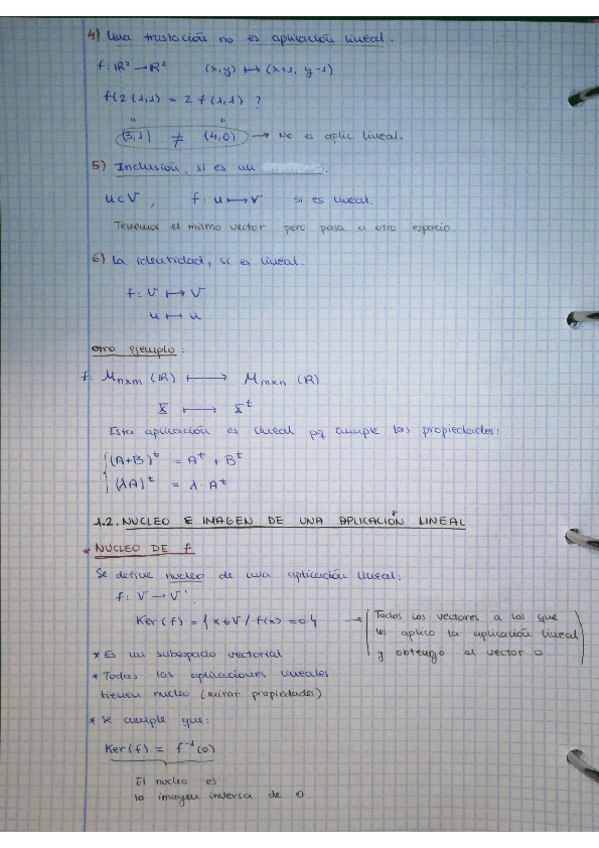 4) Una traslación no es aplicación lineal.
f: ℝ² → ℝ² (x,y) ↦ (x+1, y-1)
f(2(1,1) = 2 f(1,1) ?
" "
(3,1) ≠ (4,0) → No es aplic lineal.
5) Inclusión, si es un
u⊂V, f: u ↦ V si es lineal.
Tenemos el mismo vector pero pasa a otro espacio.
6) La identidad, si es lineal.
f: V ↦ V
u ↦ u
otro ejemplo:
f: Mnxm (ℝ) ↦ Mmxn (ℝ)
X ↦ Xᵗ
Esta aplicación es lineal pq cumple las propiedades:
(A+B)ᵗ = Aᵗ + Bᵗ
(λA)ᵗ = λ · Aᵗ
1.2. NUCLEO E IMAGEN DE UNA APLICACIÓN LINEAL
* NUCLEO DE f
Se define nucleo de una aplicación lineal:
f: V → V'
Ker(f) = {x∈V / f(x) = 0} → (Todos los vectores a los que
les aplico la aplicación lineal
y obtengo el vector 0)
* Es un subespacio vectorial
* Todas las aplicaciones lineales
tienen nucleo (mirar propiedades)
* Se cumple que:
Ker(f) = f⁻¹(0)
El nucleo es
la imagen inversa de 0